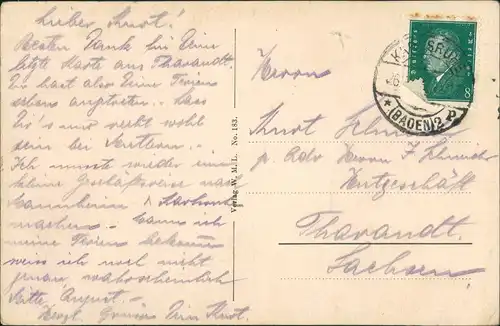 Lieber Knut!
Besten Dank für Deine
letzte Karte aus Tharandt.
Du hast also Deine Ferien
schon angetreten. Lass
Dir's nur recht wohl
sein bei Muttern.
Ich musste wieder eine
kleine Geschäftsreise nach
Mannheim &
machen. Wann ich
meine Ferien bekomme
weiss ich noch nicht
genau, wahrscheinlich
Mitte August.
Herzl. Grüsse Dein Knut.
Verlag W. M. L. No. 183.
Deutsches Reich
8
KARLSRUHE
(BADEN) 2 P
Herrn
Knut
p. Adr Herrn F.
Hutgeschäft
Tharandt.
Sachsen